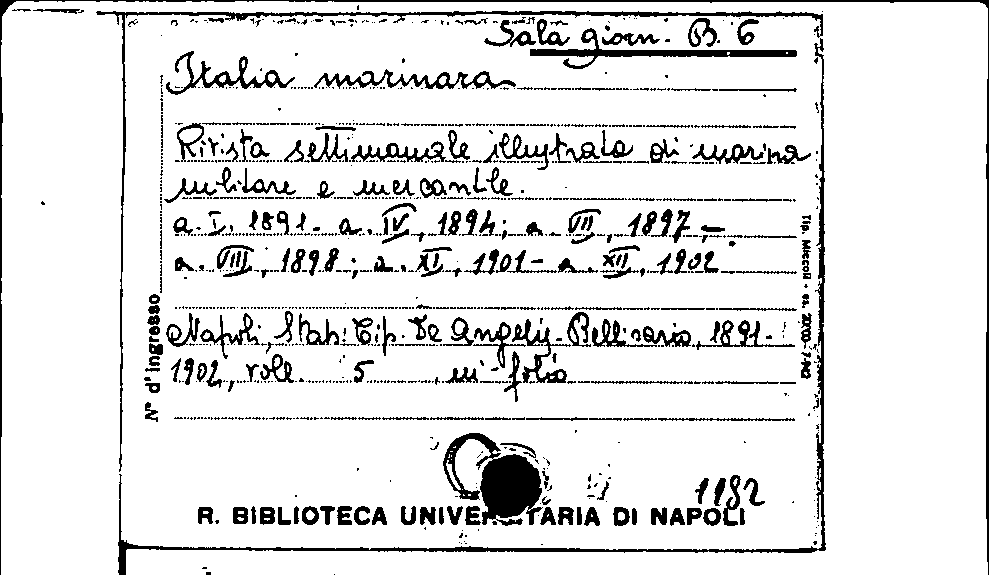 Sala giorn. B. 6
Italia marinara
Rivista settimanale illustrata di marina
militare e mercantile.
a. I. 1891- a. IV, 1894; a. VII, 1897,-
a. VIII, 1898; a. XI, 1901- a. XII, 1902
Napoli, Stab. Tip. De Angelis-Bellisario, 1891-
1902, voll. 5 in-folio
N° d'ingresso
Tip. Miccoli - es. 2000 -
1182
R. BIBLIOTECA UNIVERSITARIA DI NAPOLI